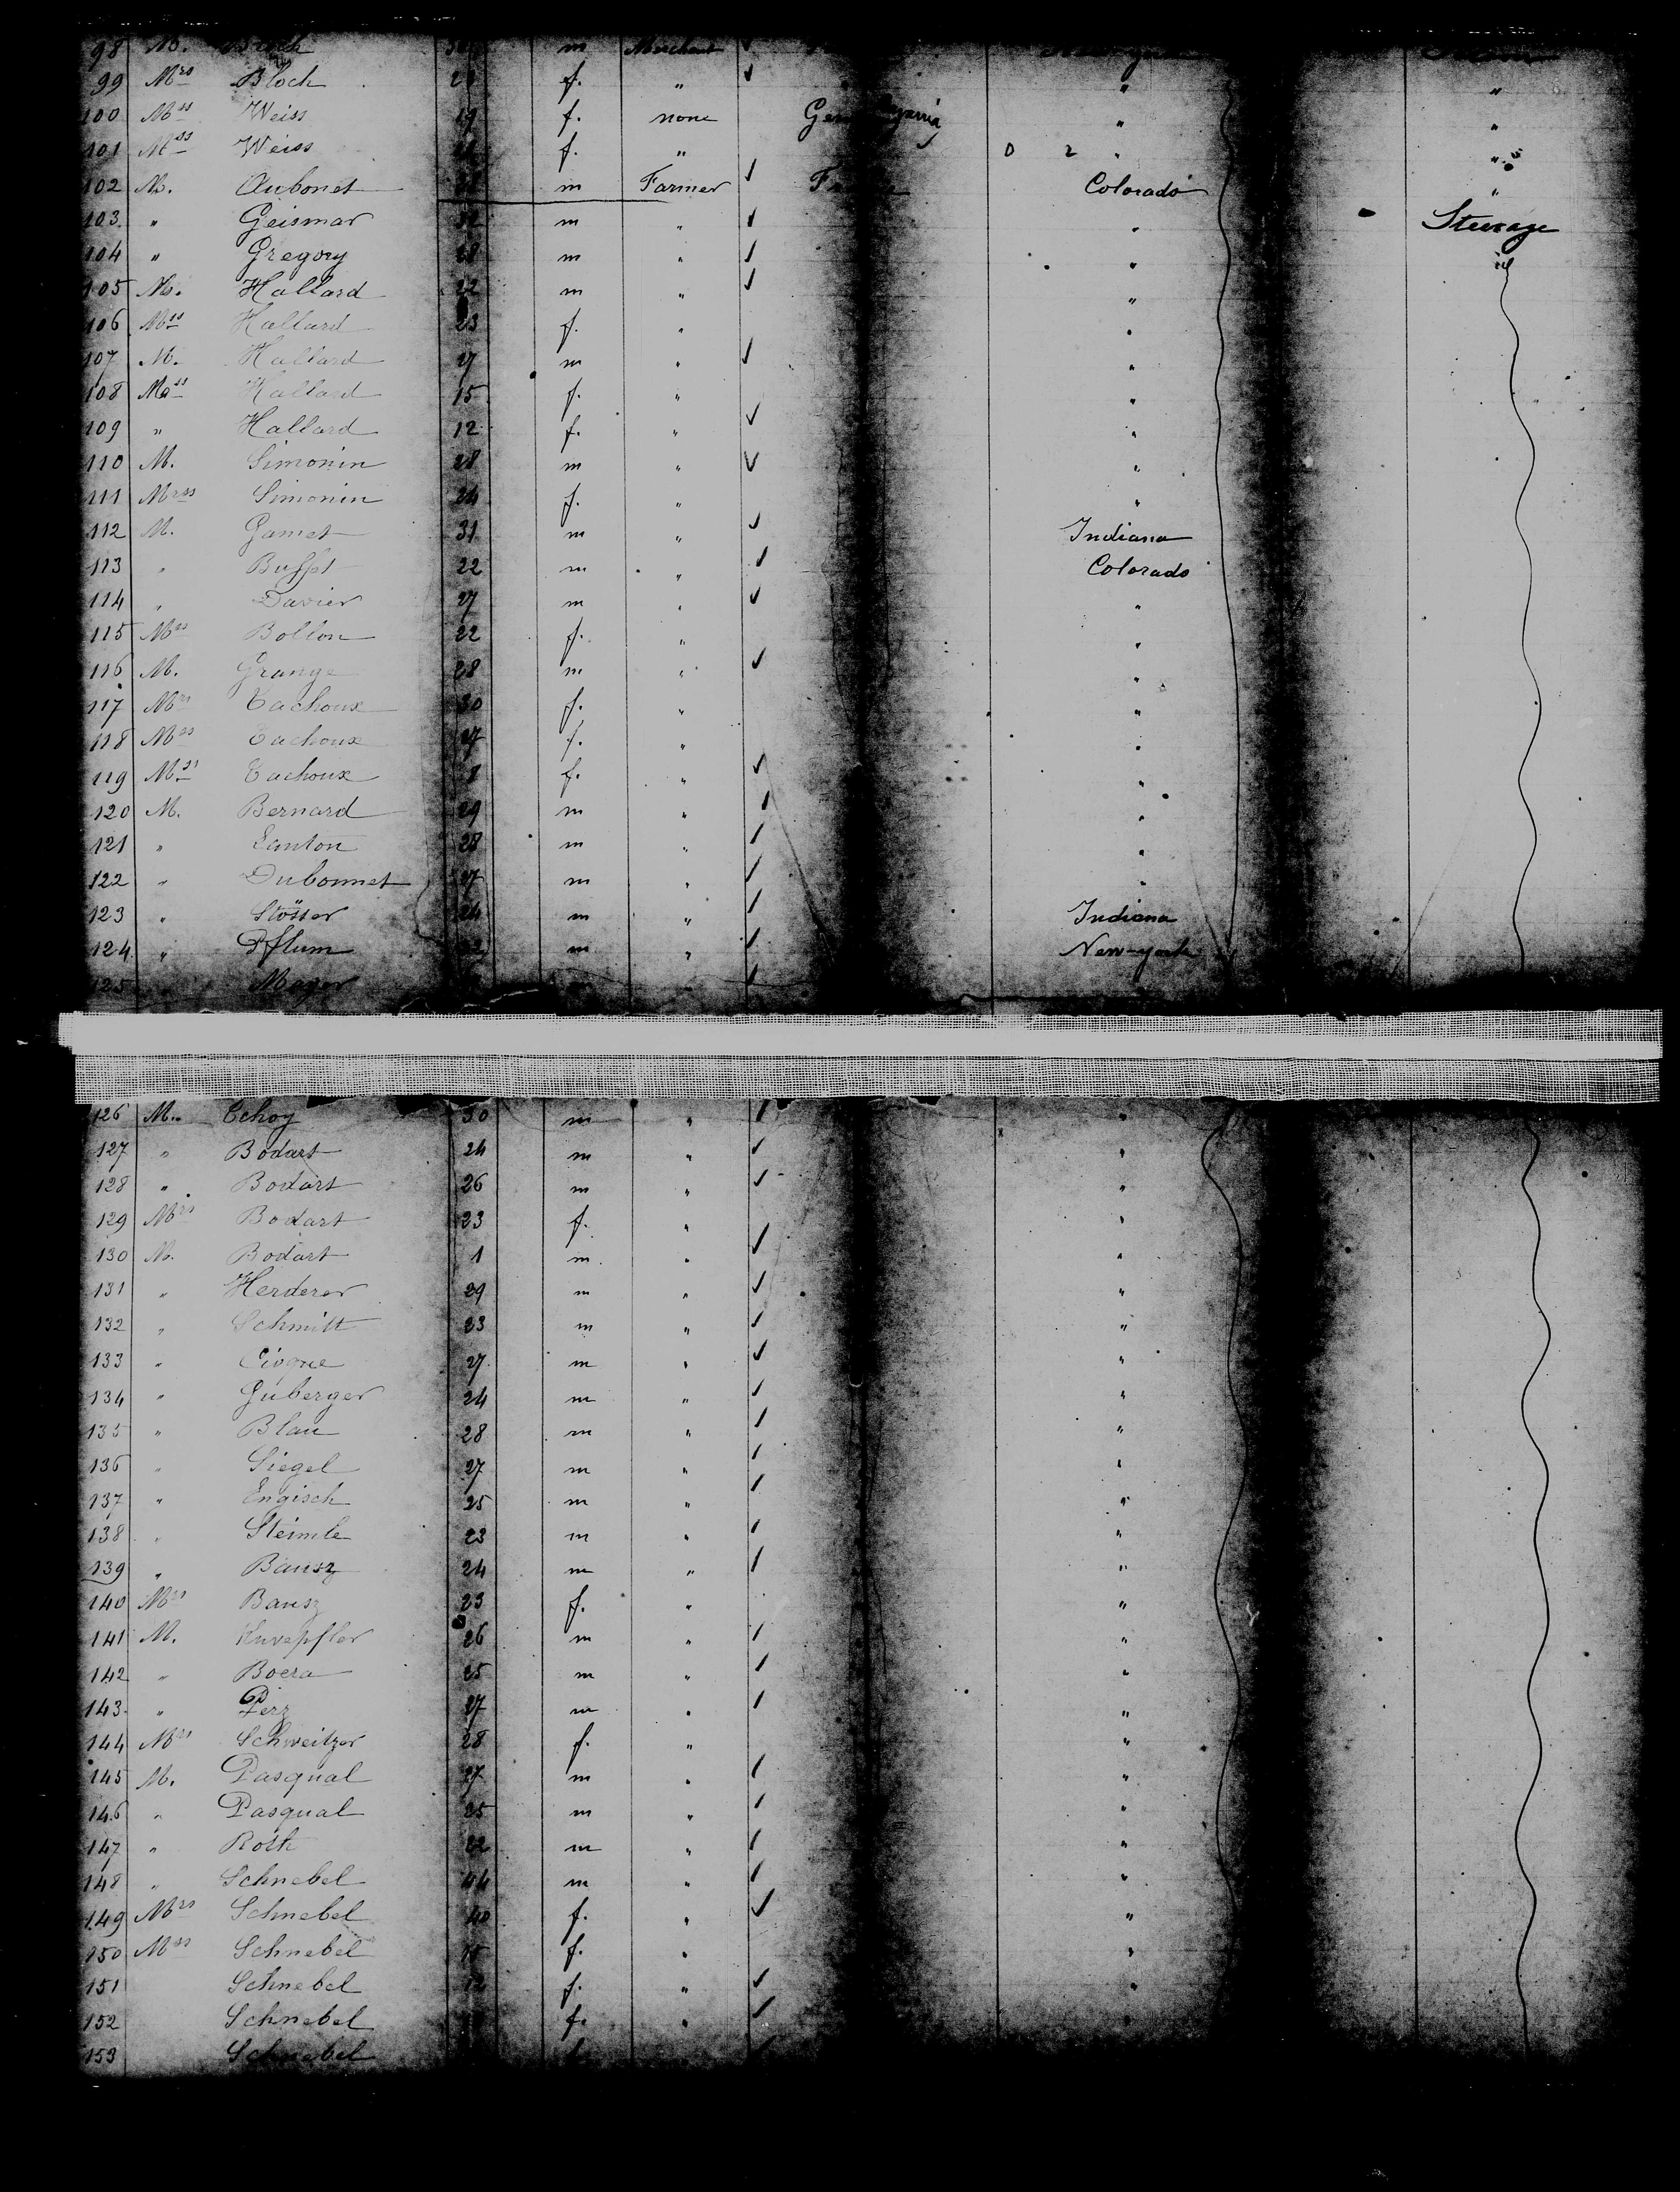 98 M. m Merchant ✓
99 Mrs Bloch f. " ✓ " "
100 Mss Weiss 19 f. none " "
101 Mss Weiss f. " 0 2 " "
102 M. Aubonet m Farmer ✓ Colorado "
103 " Geismar m " ✓ " Steerage
104 " Gregory 28 m " ✓ " id
105 M. Hallard 22 m " ✓ "
106 Mss Hallard 23 f. " "
107 M. Hallard 27 m " ✓ "
108 Mss Hallard 15 f. " "
109 " Hallard 12 f. " ✓ "
110 M. Simonin 28 m " ✓ "
111 Mrss Simonin 24 f. " "
112 M. Gamet 31 m " ✓ Indiana
113 " Buffet 22 m " ✓ Colorado
114 " Davier 27 m " ✓ "
115 Mss Bollon 22 f. " "
116 M. Grange 28 m " ✓ "
117 Mrs Cachoux 30 f. " "
118 Mss Cachoux 27 f. " "
119 Mss Cachoux 8 f. " ✓ "
120 M. Bernard 29 m " ✓ "
121 " Lanton 28 m " ✓ "
122 " Dubonnet 27 m " ✓ "
123 " Stösser 24 m " ✓ Indiana
124 " Pflum 22 m " ✓ New-york
125 Mayer ✓
126 M. Echoy 30 m " ✓ "
127 " Bodart 24 m " ✓ "
128 " Bodart 26 m " ✓ "
129 Mrs Bodart 23 f. " "
130 M. Bodart 1 m " ✓ "
131 " Herderer 29 m " ✓ "
132 " Schmitt 33 m " ✓ "
133 " Civgne 27 m " ✓ "
134 " Guberger 24 m " ✓ "
135 " Blau 28 m " ✓ "
136 " Siegel 27 m " ✓ "
137 " Engisch 25 m " ✓ "
138 " Steimle 23 m " ✓ "
139 " Bansz 24 m " ✓ "
140 Mrs Bansz 23 f. " "
141 M. Knoepfler 26 m " ✓ "
142 " Boera 25 m " ✓ "
143 " Perz 27 m " ✓ "
144 Mrs Schweitzer 28 f. " "
145 M. Pasqual 27 m " ✓ "
146 " Pasqual 25 m " ✓ "
147 " Roth 22 m " ✓ "
148 " Schnebel 44 m " ✓ "
149 Mrs Schnebel 40 f. " ✓ "
150 Mss Schnebel 15 f. " "
151 Schnebel 12 f. " ✓ "
152 Schnebel f. " ✓ "
153 Schnebel